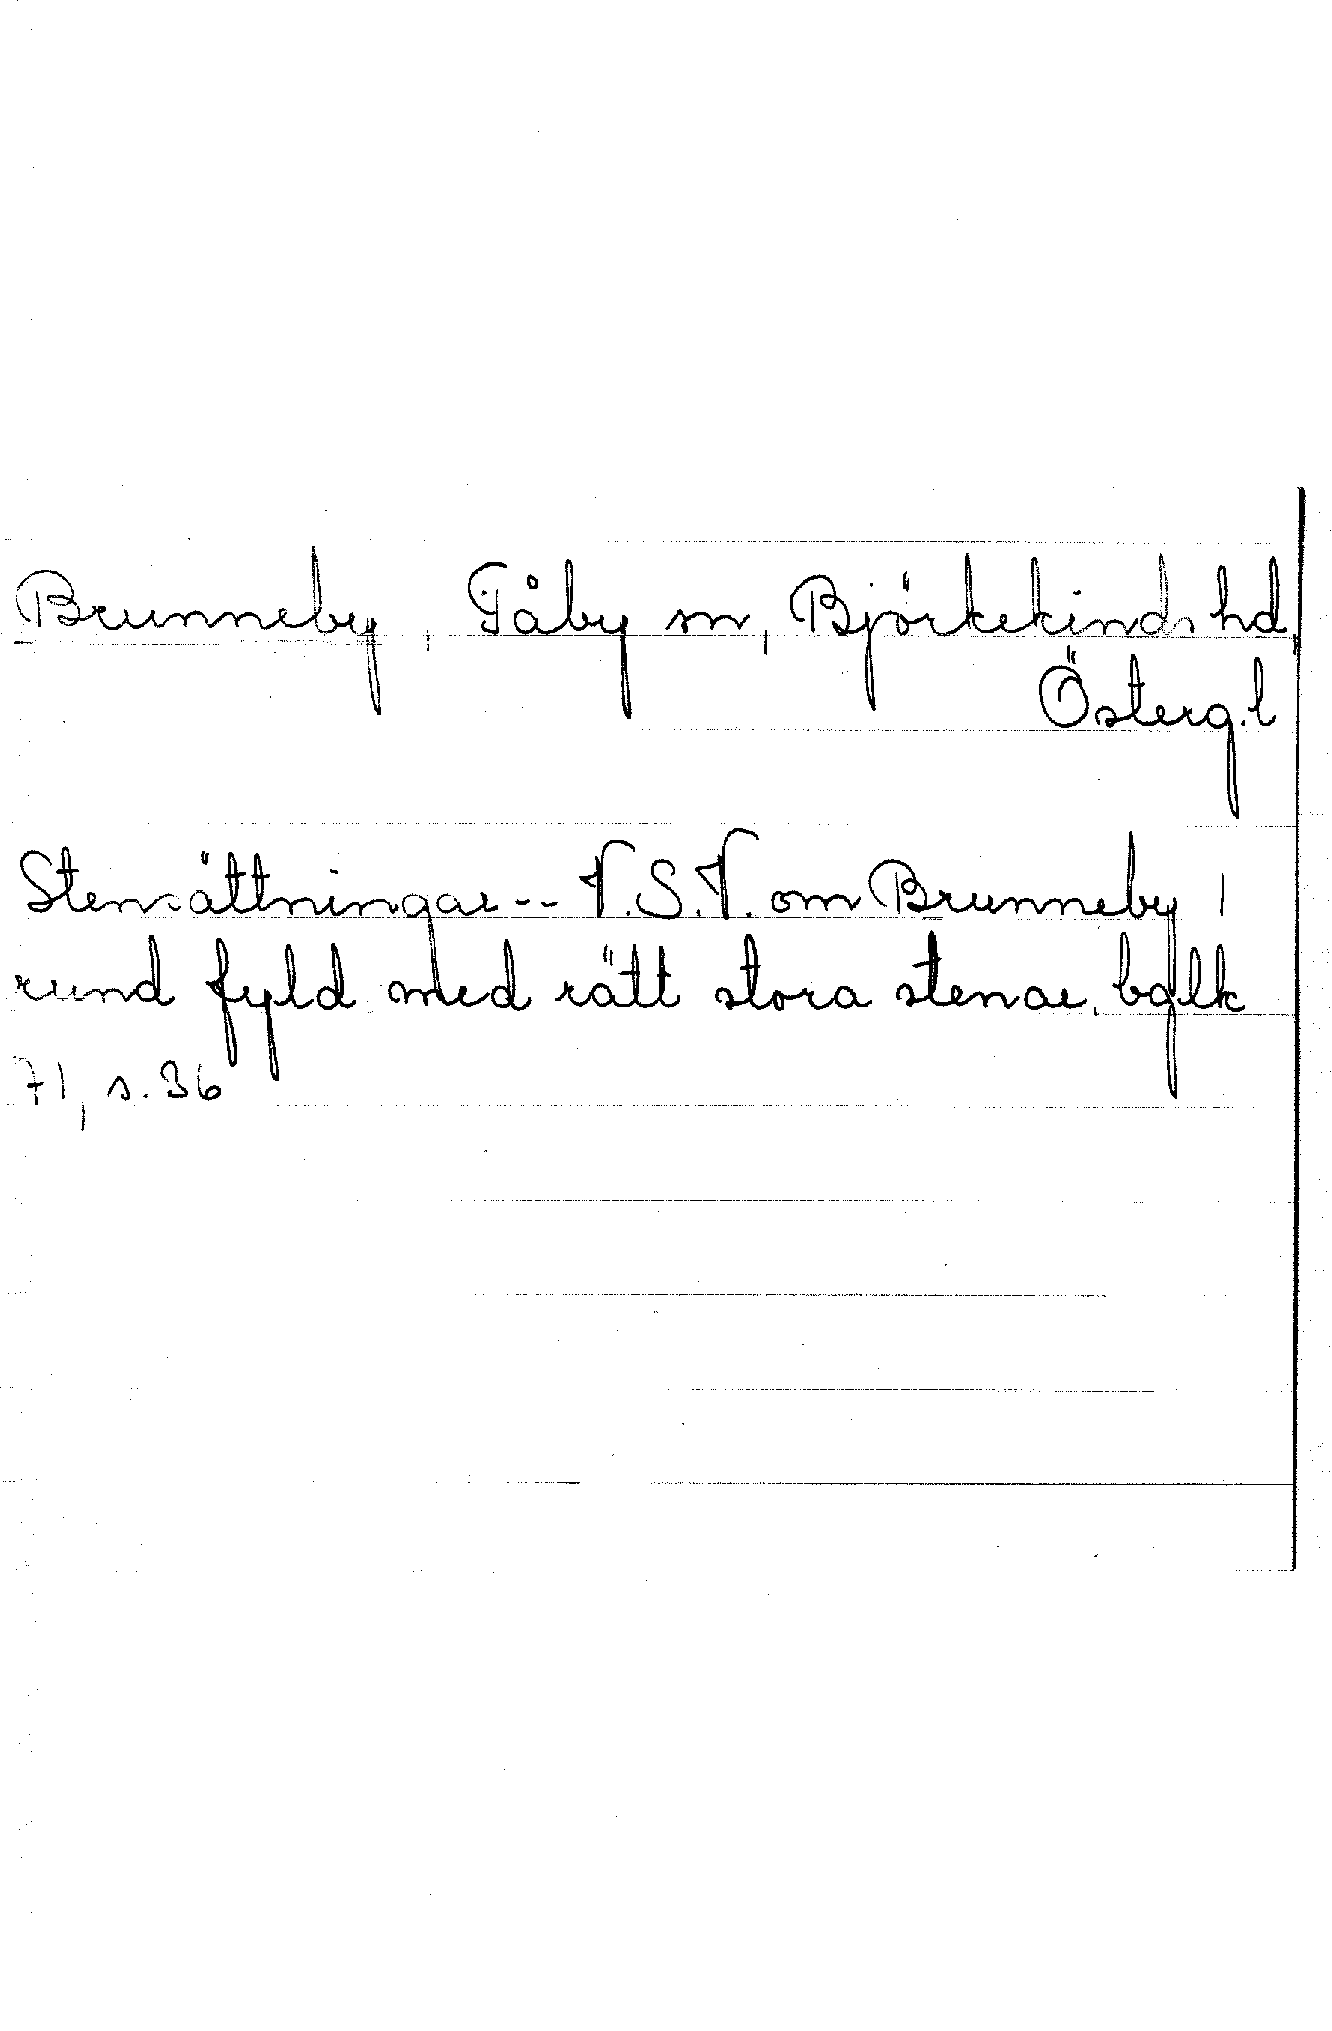 Brunneby, Tåby sn, Björkekinds hd,
Österg.l
Stensättningar -- V.S.V. om Brunneby 1
rund fyld med rätt stora stenar. bglk
71, s. 36